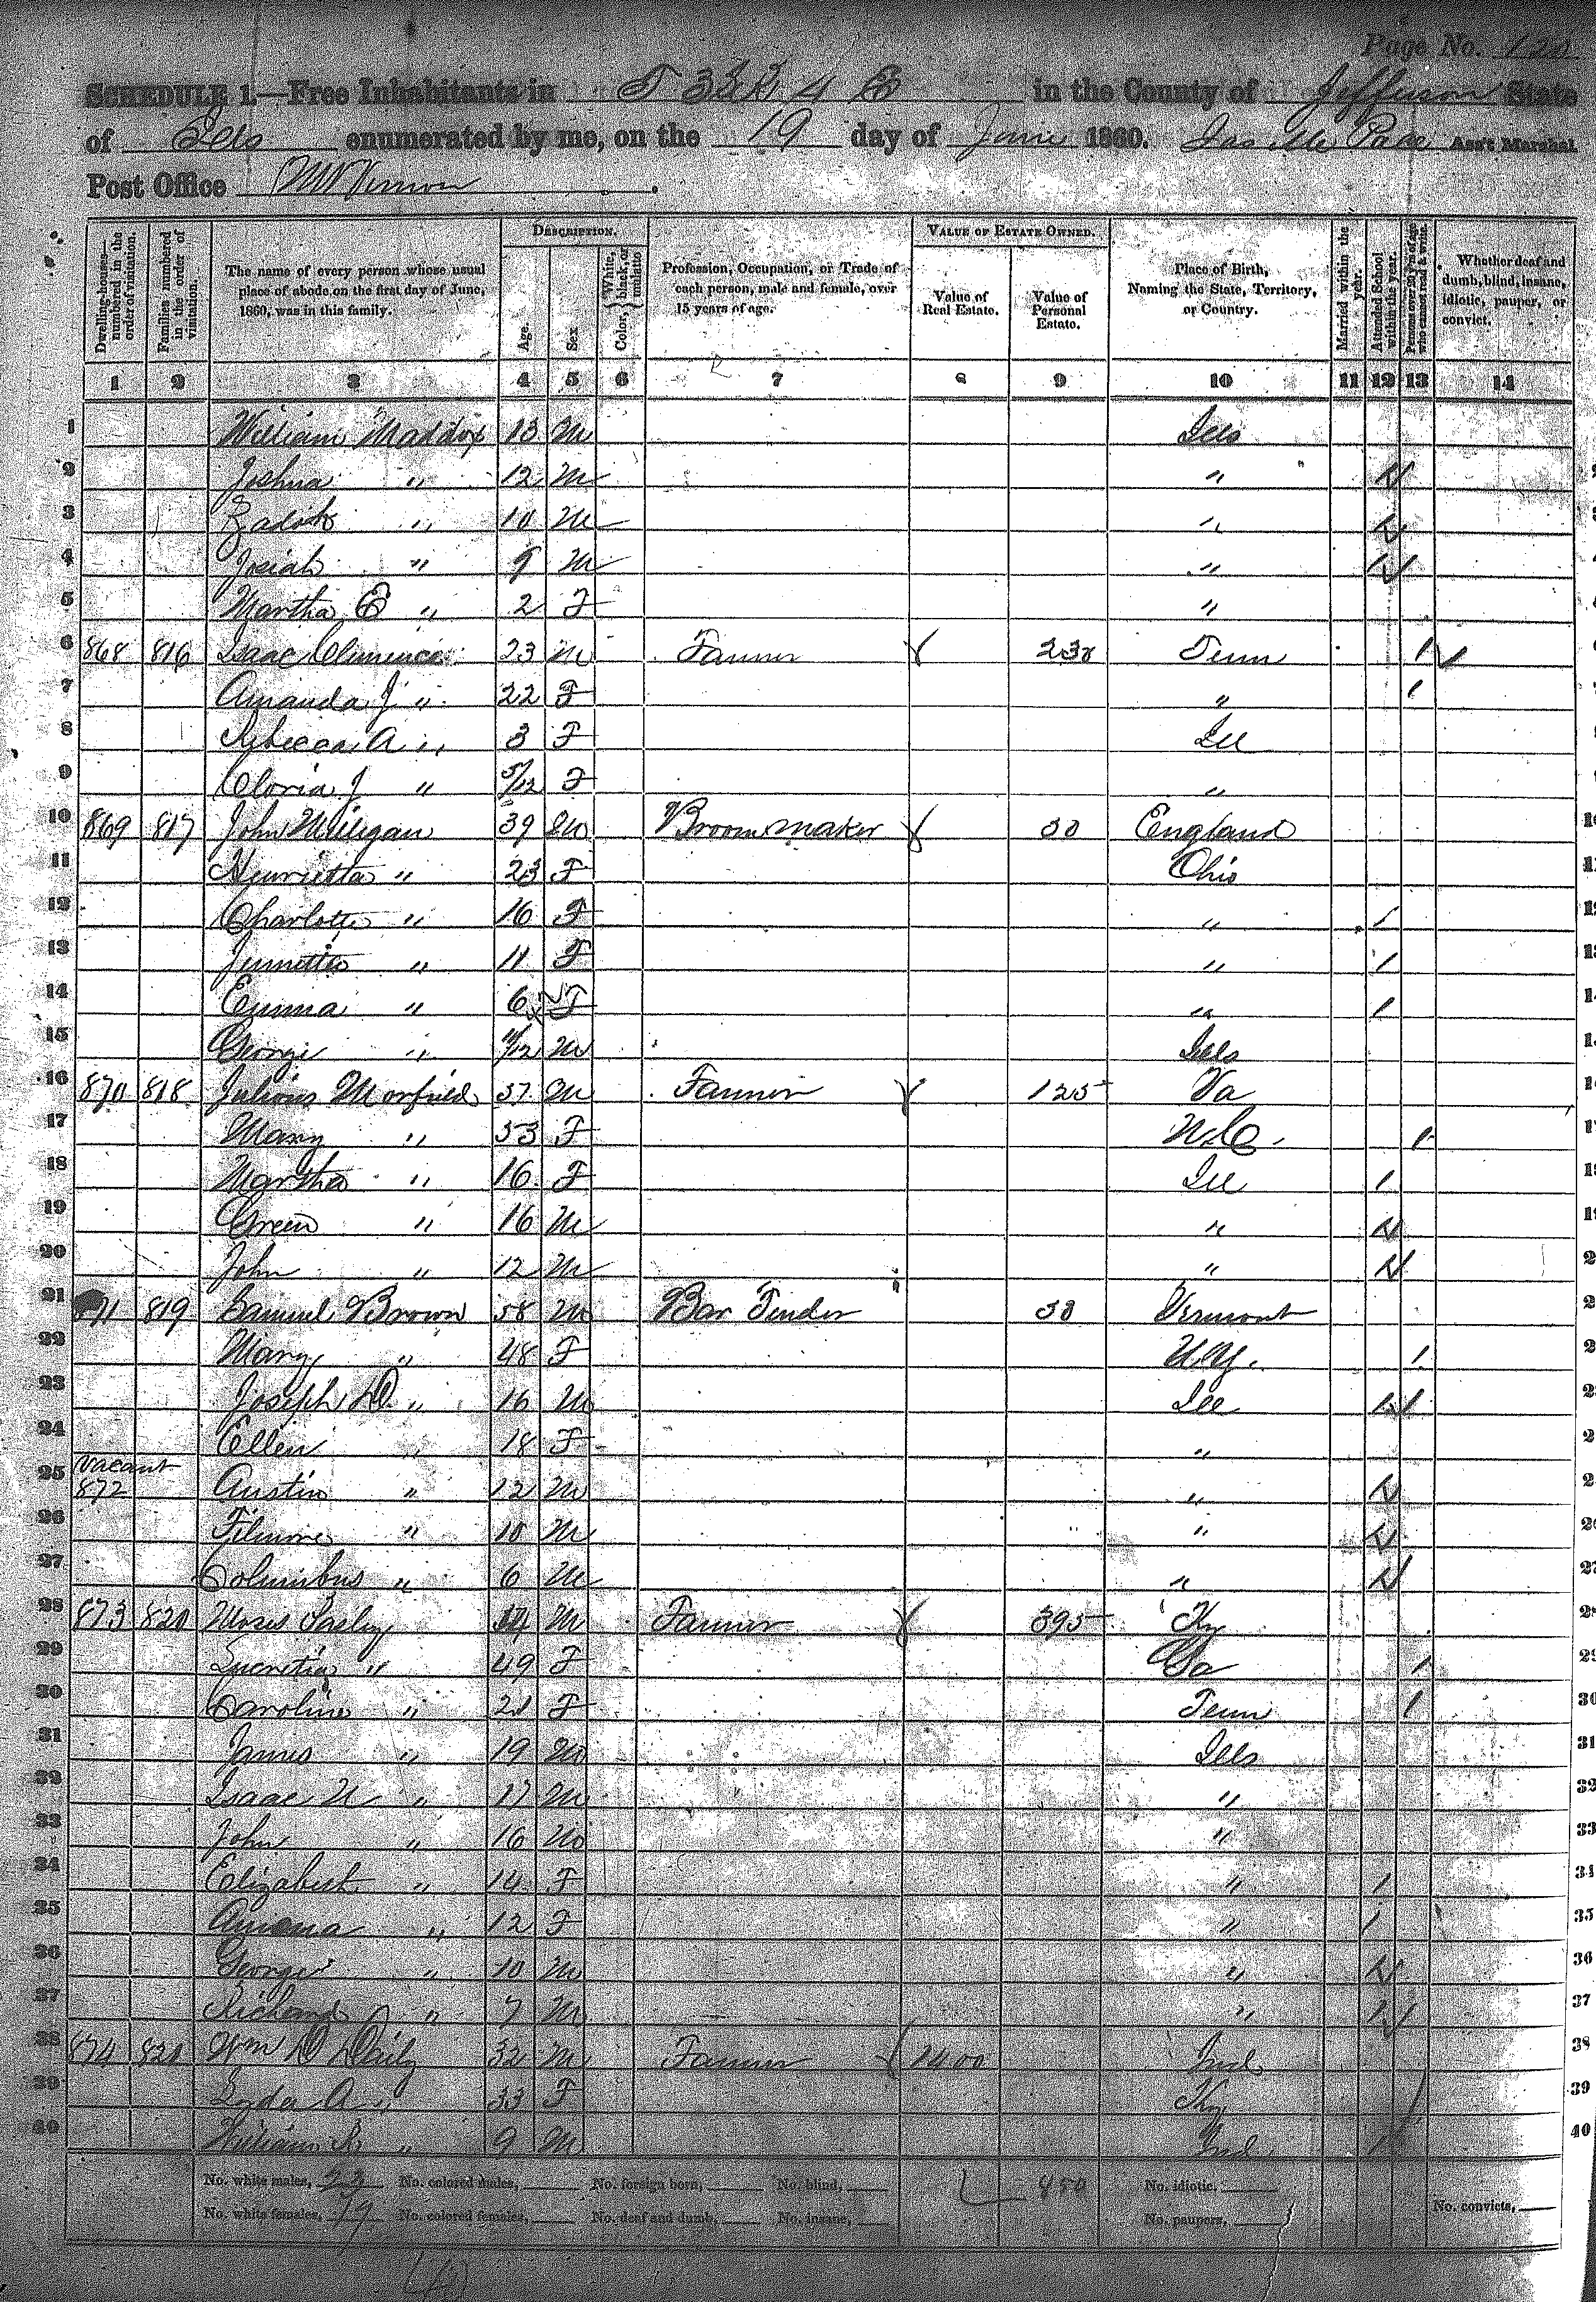 Page No. 120
SCHEDULE 1.—Free Inhabitants in T 3 S R 4 E in the County of Jefferson State
of Ills enumerated by me, on the 19 day of June 1860. Pace Ass't Marshal.
Post Office Mt Vernon.
Dwelling-houses—numbered in the order of visitation.
Families numbered in the order of visitation.
The name of every person whose usual place of abode on the first day of June, 1860, was in this family.
DESCRIPTION.
Age.
Sex
Color, { White, black, or mulatto
Profession, Occupation, or Trade of each person, male and female, over 15 years of age.
VALUE OF ESTATE OWNED.
Value of Real Estate.
Value of Personal Estate.
Place of Birth, Naming the State, Territory, or Country.
Married within the year.
Attended School within the year.
Persons over 20 y'rs of age who cannot read & write.
Whether deaf and dumb, blind, insane, idiotic, pauper, or convict.
1 2 3 4 5 6 7 8 9 10 11 12 13 14
1 William Maddox 13 M Ills
2 Joshua " 12 M " 1
3 Zadok " 10 M " 1
4 Josiah " 9 M " 1
5 Martha E " 2 F "
6 868 816 Isaac 23 M Farmer Tenn 1
7 Amanda J " 22 F " 1
8 Rebecca A " 3 F Ill
9 Cloria J " 5/12 F "
10 869 817 John Milligan 39 M Broom maker England
11 Henrietta " 23 F Ohio
12 Charlotte " 16 F " 1
13 " 11 F " 1
14 Emma " 6 F " 1
15 George " M Ills
16 870 818 Morfield M Farmer 125 Va
17 Mary " 53 F N.C. 1
18 Martha " 16 F Ill 1
19 Green " 16 M " 1
20 John " 12 M " 1
21 871 819 Samuel Brown 58 M Bar Tender Vermont
22 Mary " 48 F N.Y. 1
23 Joseph D. " 16 M Ill 1
24 Ellen " 18 F "
vacant
25 872 Austin " 12 M " 1
26 Filmore " 10 M " 1
27 Columbus " 6 M " 1
28 873 820 Moses M Farmer 395 Ky
29 Lucretia " 49 F Ga 1
30 Caroline " 21 F Tenn 1
31 James " 19 M Ills
32 Isaac N " 17 M "
33 John " 16 M "
34 Elizabeth " 14 F " 1
35 " 12 F " 1
36 George " 10 M " 1
37 Richard " 7 M " 1
38 874 821 Wm D Daily 32 M Farmer 1400 Ind
39 A " 33 F Ky 1
40 William " 9 M Ind 1
No. white males, 22 No. colored males, No. foreign born, No. blind, No. idiotic,
No. white females, 19 No. colored females, No. deaf and dumb, No. insane, No. paupers, No. convicts,